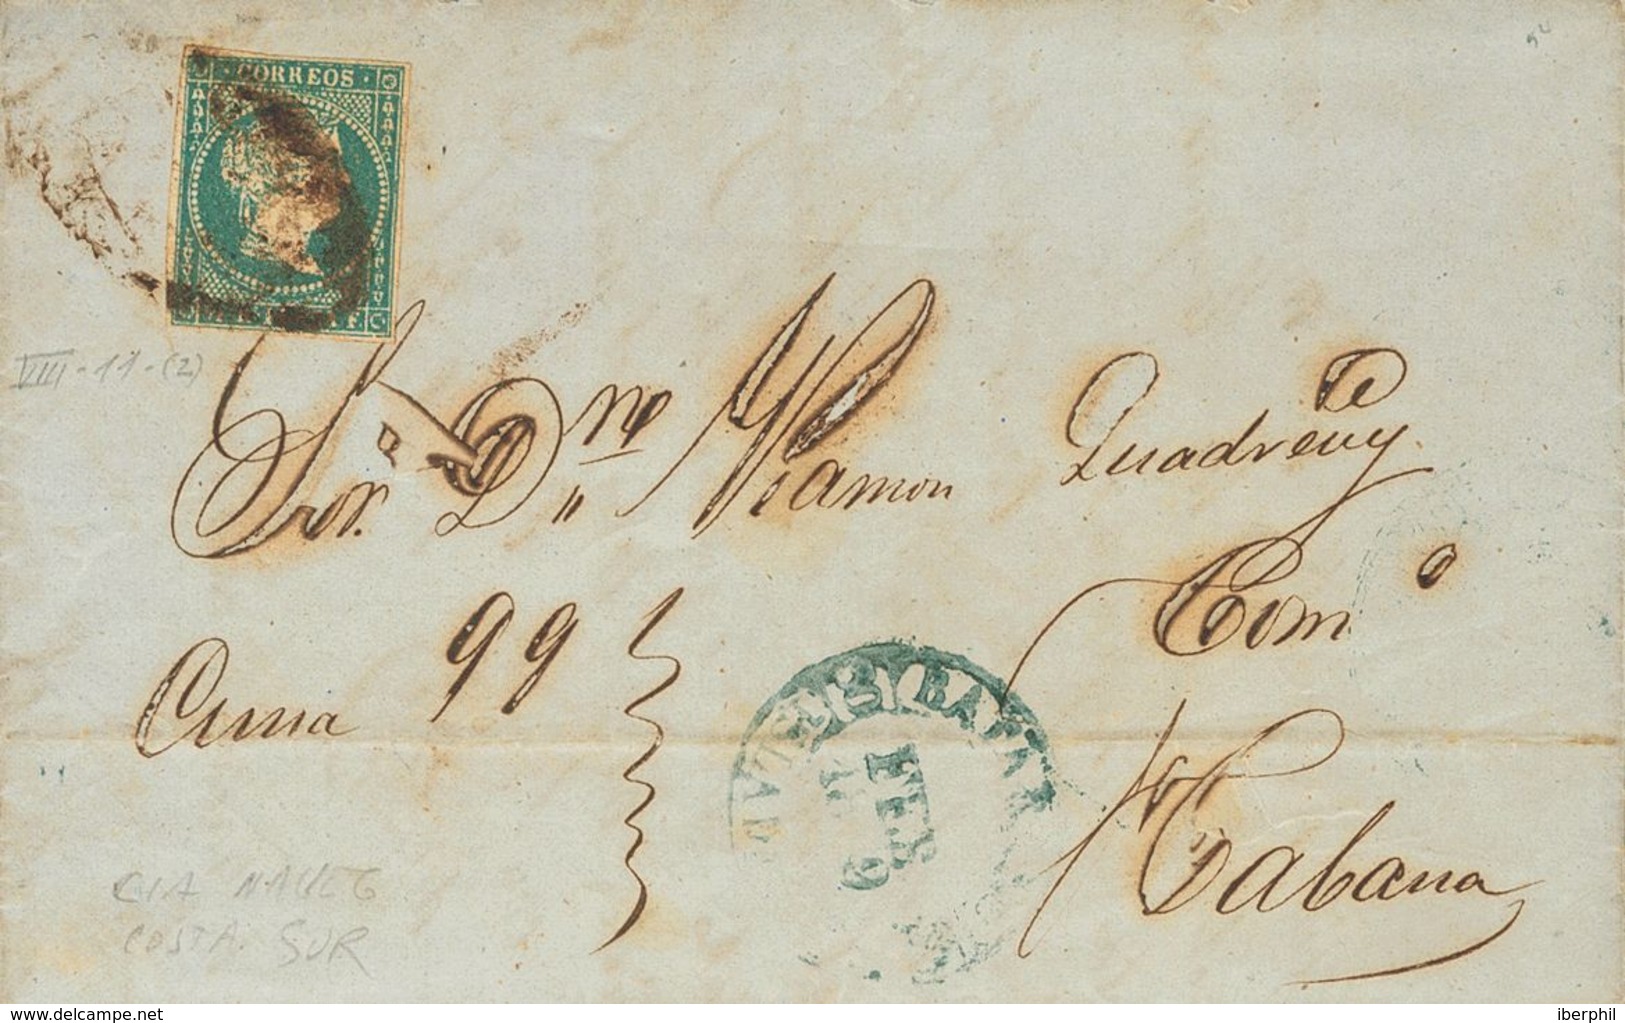 CORREOS
F.
VIII-11-(2)
Sor. Dn. Ramon Quadreny
Como
Cuna 99
Habana
BATA
FEB
9
CIA NAVEG
COSTA SUR
delcampe.net
iberphil